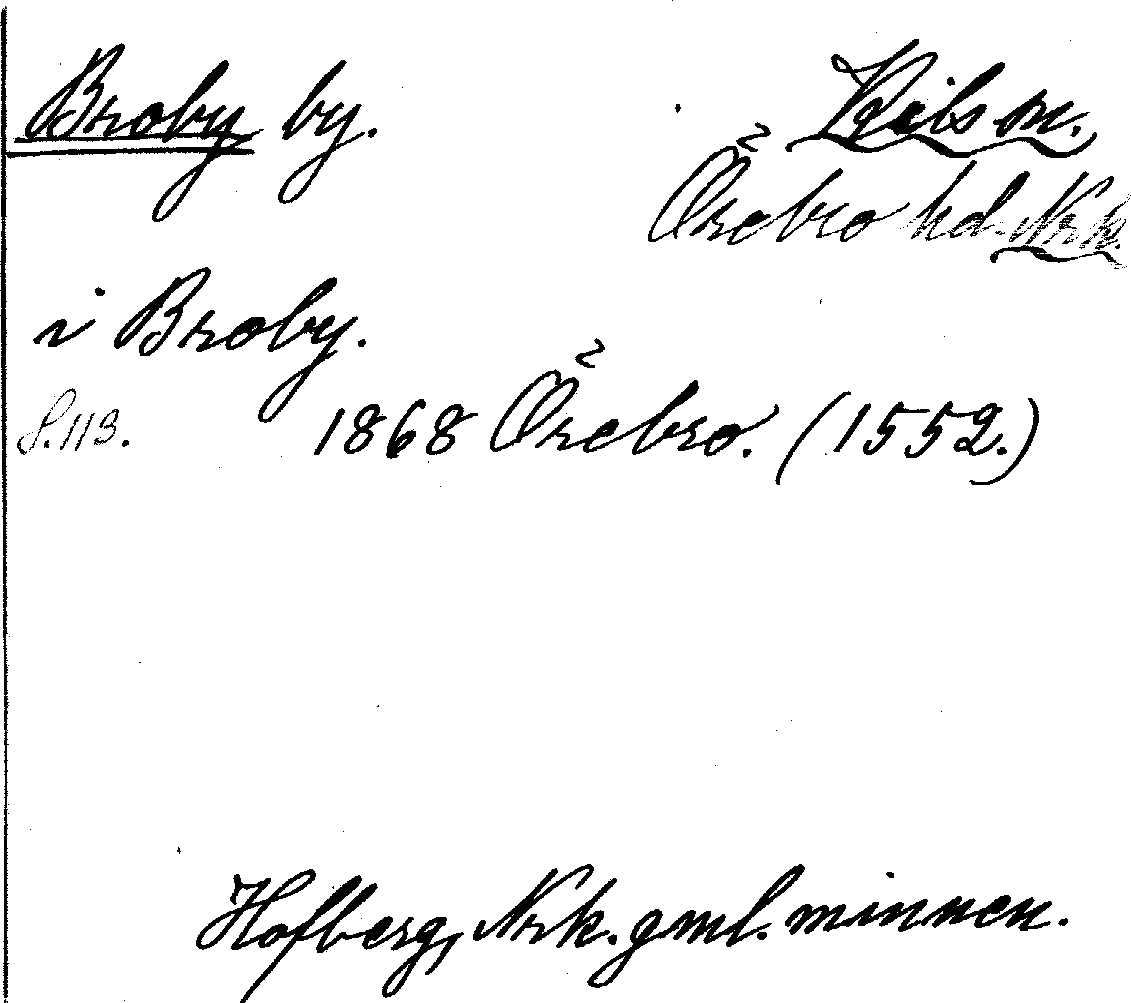 Broby by.
Kils sn.
Örebro hd. Nrk.
i Broby.
S. 113. 1868 Örebro. (1552.)
Hofberg, Nrk. gml. minnen.